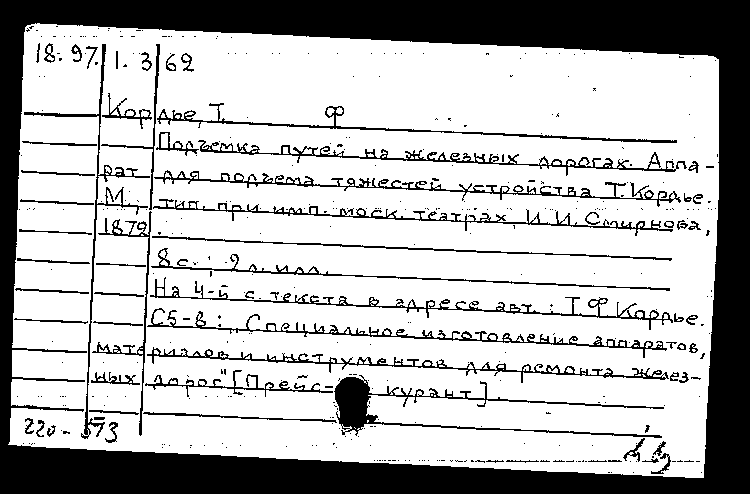 18.97.1.3 62
Кордье, Т. Ф
Подъемка путей на железных дорогах. Аппа-
рат для подъема тяжестей устройства Т. Кордье.
М., тип. при имп. моск. театрах, И. И. Смирнова,
1872.
8 с.; 2 л. илл.
На 4-й с. текста в адресе авт.: Т Ф Кордье.
С 5-8: „Специальное изготовление аппаратов,
материалов и инструментов для ремонта желез-
ных дорог" [Прейс- курант].
220-573